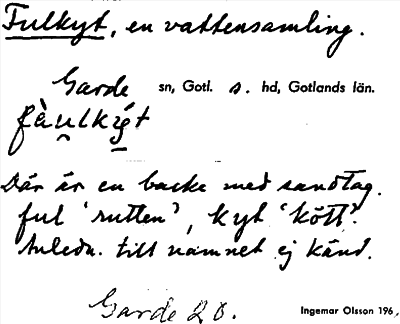 Fulkyt, en vattensamling.
Garde sn, Gotl. s. hd, Gotlands län.
fàulkýt
Där är en backe med sandtag.
ful 'rutten', kyt 'kött'.
Anledn. till namnet ej känd.
Garde 28.
Ingemar Olsson 196